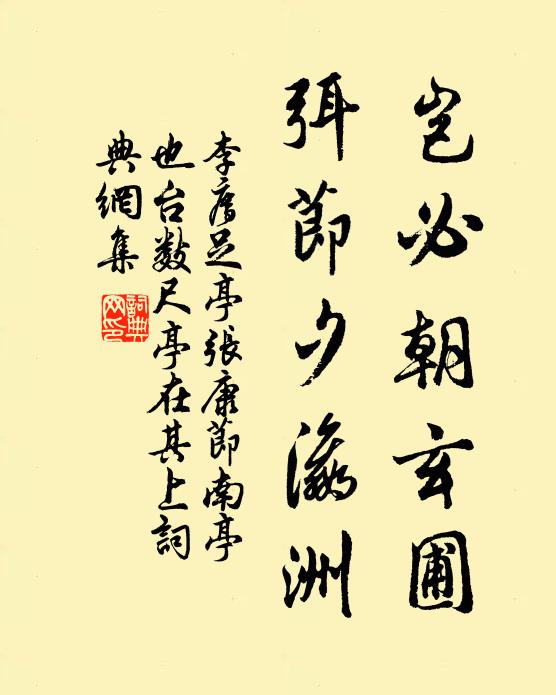 豈必朝玄圃
弭節夕瀛洲
李膺足亭張康節南亭
也台數尺亭在其上詞
典網集
詞典網印